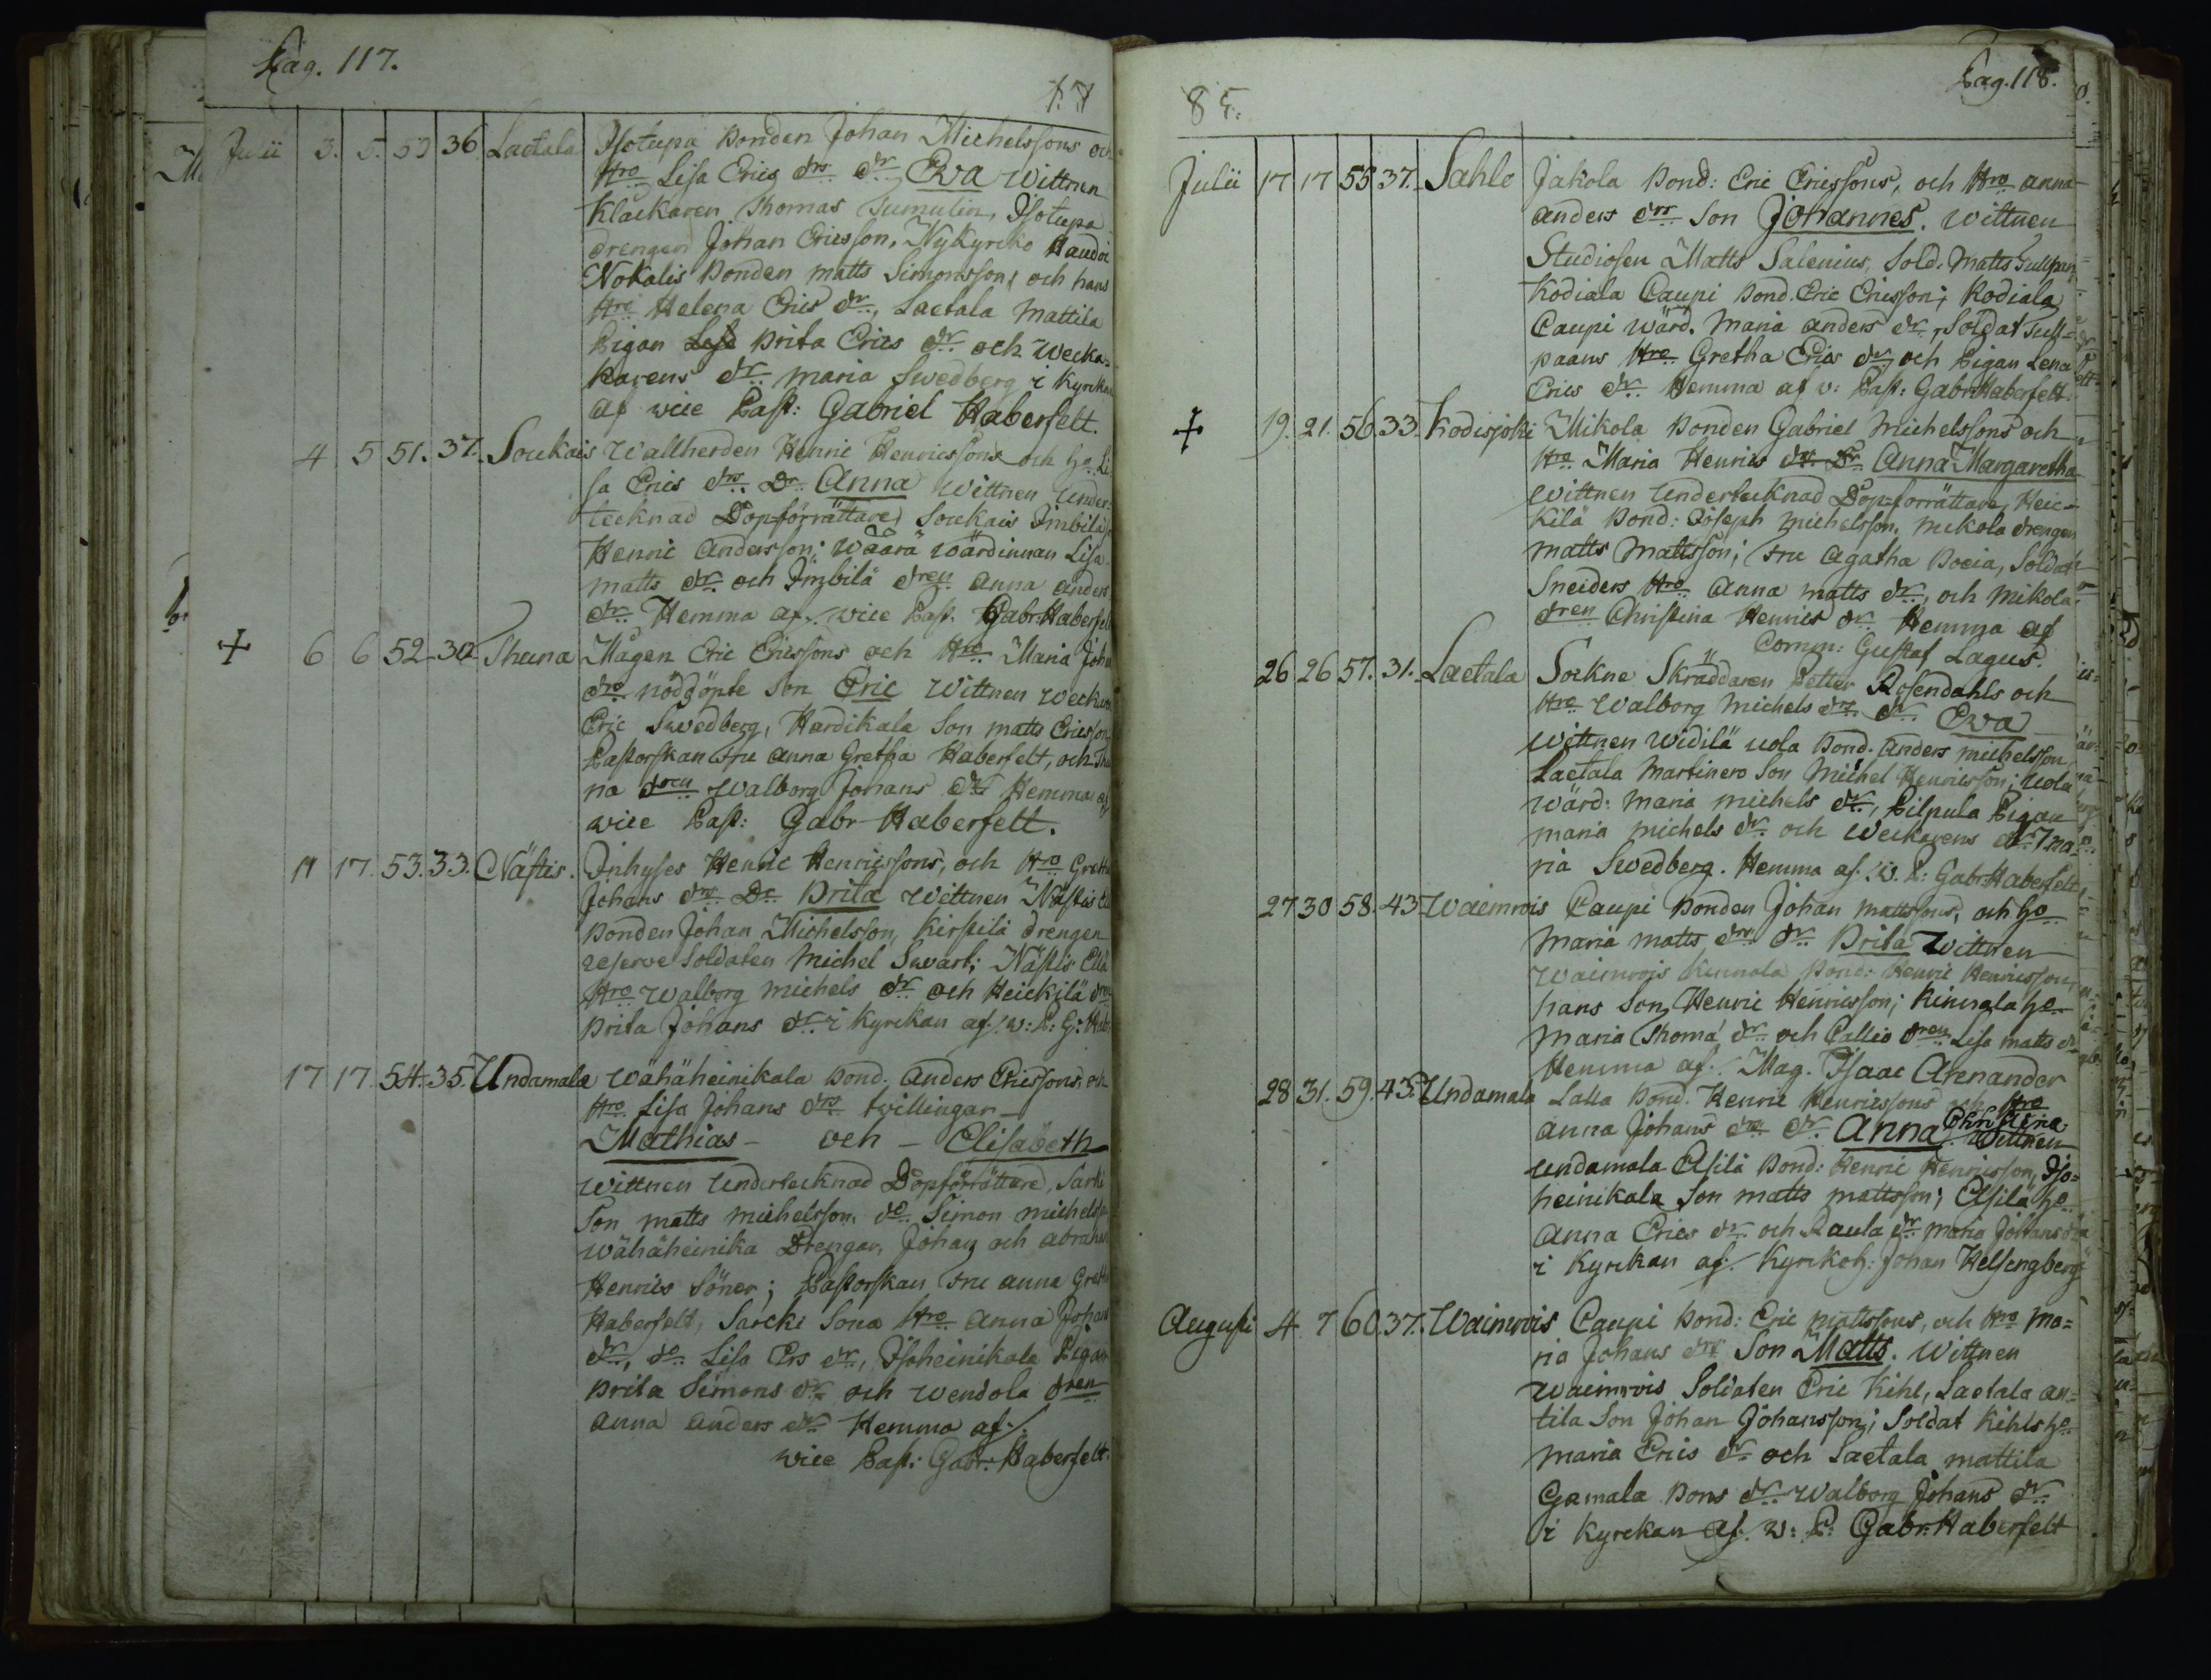 Pag. 117.
17
Julii 3. 5. 50 36 Laetala Isotupa Bonden Johan Michelssons och
Hro Lisa Erics drs dr Eva Wittnen
Klåckaren Thomas Sumulin, Isotupa
drengen Johan Ericsson, Nykyrcko Haudois
Nokalis Bonden Matts Simonsson, och hans
Hro Helena Erics dr, Laetala Mattila
Pigan Brita Erics dr och Wecka=
karens dr Maria Swedberg i Kyrckan
af vice Past: Gabriel Haberfelt.
4 5 51. 37. Soukais Wallherden Henric Henricssons och ho Li
sa Erics drs Dr Anna Wittnen Under-
tecknad Dopförrättare, Soukais Simbilä
Henric Andersson; Wäärä Wärdinnan Lisa
Matts dr och Simbilä dren Anna Anders
dr Hemma af vice Past. Gabr: Haberfelt
+ 6 6 52 30 Thuna Mågen Eric Ericssons och Hro Maria Joha
drs nödgöpte Son Eric Wittnen Weckar
Eric Swedberg, Hardikala Son Matts Ericsson,
Pastorskan Fru Anna Gretha Haberfelt, och Thu
na dren Walborg Johans dr Hemma af
vice Past: Gabr Haberfelt.
11 17. 53. 33. Nästis. Inhyses Henric Henricssons, och Hro Gretha
Johans drs Dr Brita Wittnen Nästis
Bonden Johan Michelsson, Kirspilä drengen
reserve Soldaten Michel Swart; Nästis Ella
Hro Walborg Michels dr och Heickilä dren
Brita Johans dr i Kyrckan af v: P: G: Hab
17 17. 54. 35. Undamala Wähäheinikala Bond. Anders Ericssons, och
Hro Lisa Johans drs twillingar
Mathias - och - Elisabeth
Wittnen Undertecknad Dopförrättare, Sarki
Son Matts Michelsson, do Simon Michelsson
Wähäheinika Drengar, Johan och Abraham
Henrics Söner; Pastorskan Fru Anna Gretha
Haberfelt, Sarcki Sona Hro Anna Johans
dr, do Lisa Ers dr, Isoheinikala Pigan
Brita Simons dr och Wendola dren
Anna Anders dr Hemma af
vice Past: Gabr: Haberfelt.
85.
Pag. 118.
Julii 17 17 55 37. Sahlo Jakola Bond: Eric Ericssons, och Hro Anna
Anders drs Son Johannes. Wittnen
Studiosen Matts Salenius, Sold: Matts Tullpan
Kodiala Caupi Bond. Eric Ericsson; Kodiala
Caupi Wärd. Maria Anders dr, Soldat Tull=
paans Hro Gretha Erics dr och Pigan Lena
Erics dr Hemma af v: Past: Gabr: Haberfelt.
+ 19. 21. 56. 33. Kodisjoki Mikola Bonden Gabriel Michelssons och
Hro Maria Henrics drs Dr Anna Margaretha
Wittnen Undertecknad Dop=förrättare, Heic=
kilä Bond: Joseph Michelsson, Mikola drengen
Matts Mattsson; Fru Agatha Bocia, Soldat
Sneiders Hro Anna Matts dr, och Mikola
dren Christina Henrics dr Hemma af
Comm: Gustaf Lagus.
26 26 57. 31. Laetala Sockne Skräddaren Petter Rosendahls och
Hro Walborg Michels drs dr Eva
Wittnen Widilä Uola Bond. Anders Michelsson,
Laetala Martinero Son Michel Henricsson; Uola
Wärd: Maria Michels dr, Pilpula Pigan
Maria Michels dr och Weckarens dr Ma=
ria Swedberg. Hemma af V. P: Gabr: Haberfelt
27 30 58. 43 Waimrois Caupi Bonden Johan Mattssons, och ho
Maria Matts drs dr Brita Wittnen
Waimrois Kinnala Bond: Henric Henricsson,
hans Son Henric Henricsson; Kinnala ho
Maria Thoma dr och Callio dren Lisa Matts dr
Hemma af Mag. Isaac Arenander
28 31. 59. 43. Undamala Lalla Bond. Henric Henricssons och Hro
Anna Johans drs dr Anna Christina Wittnen
Undamala Elsilä Bond: Henric Henricsson, Iso=
heinikala Son Matts Mattsson; Elsilä ho
Anna Erics dr och Raula dr Maria Johans dr
i Kyrckan af Kyrckoh: Johan Helsingberg
Augusti 4 7 60 37. Waimrois Caupi Bond: Eric Mattssons, och Hro Ma=
ria Johans drs Son Matts. Wittnen
Waimrois Soldaten Eric Kihl, Laetala An=
tila Son Johan Johansson; Soldat Kihls ho
Maria Erics dr och Laetala Mattila
Gamala Bons dr Walborg Johans dr
i Kyrckan af v: P: Gabr: Haberfelt